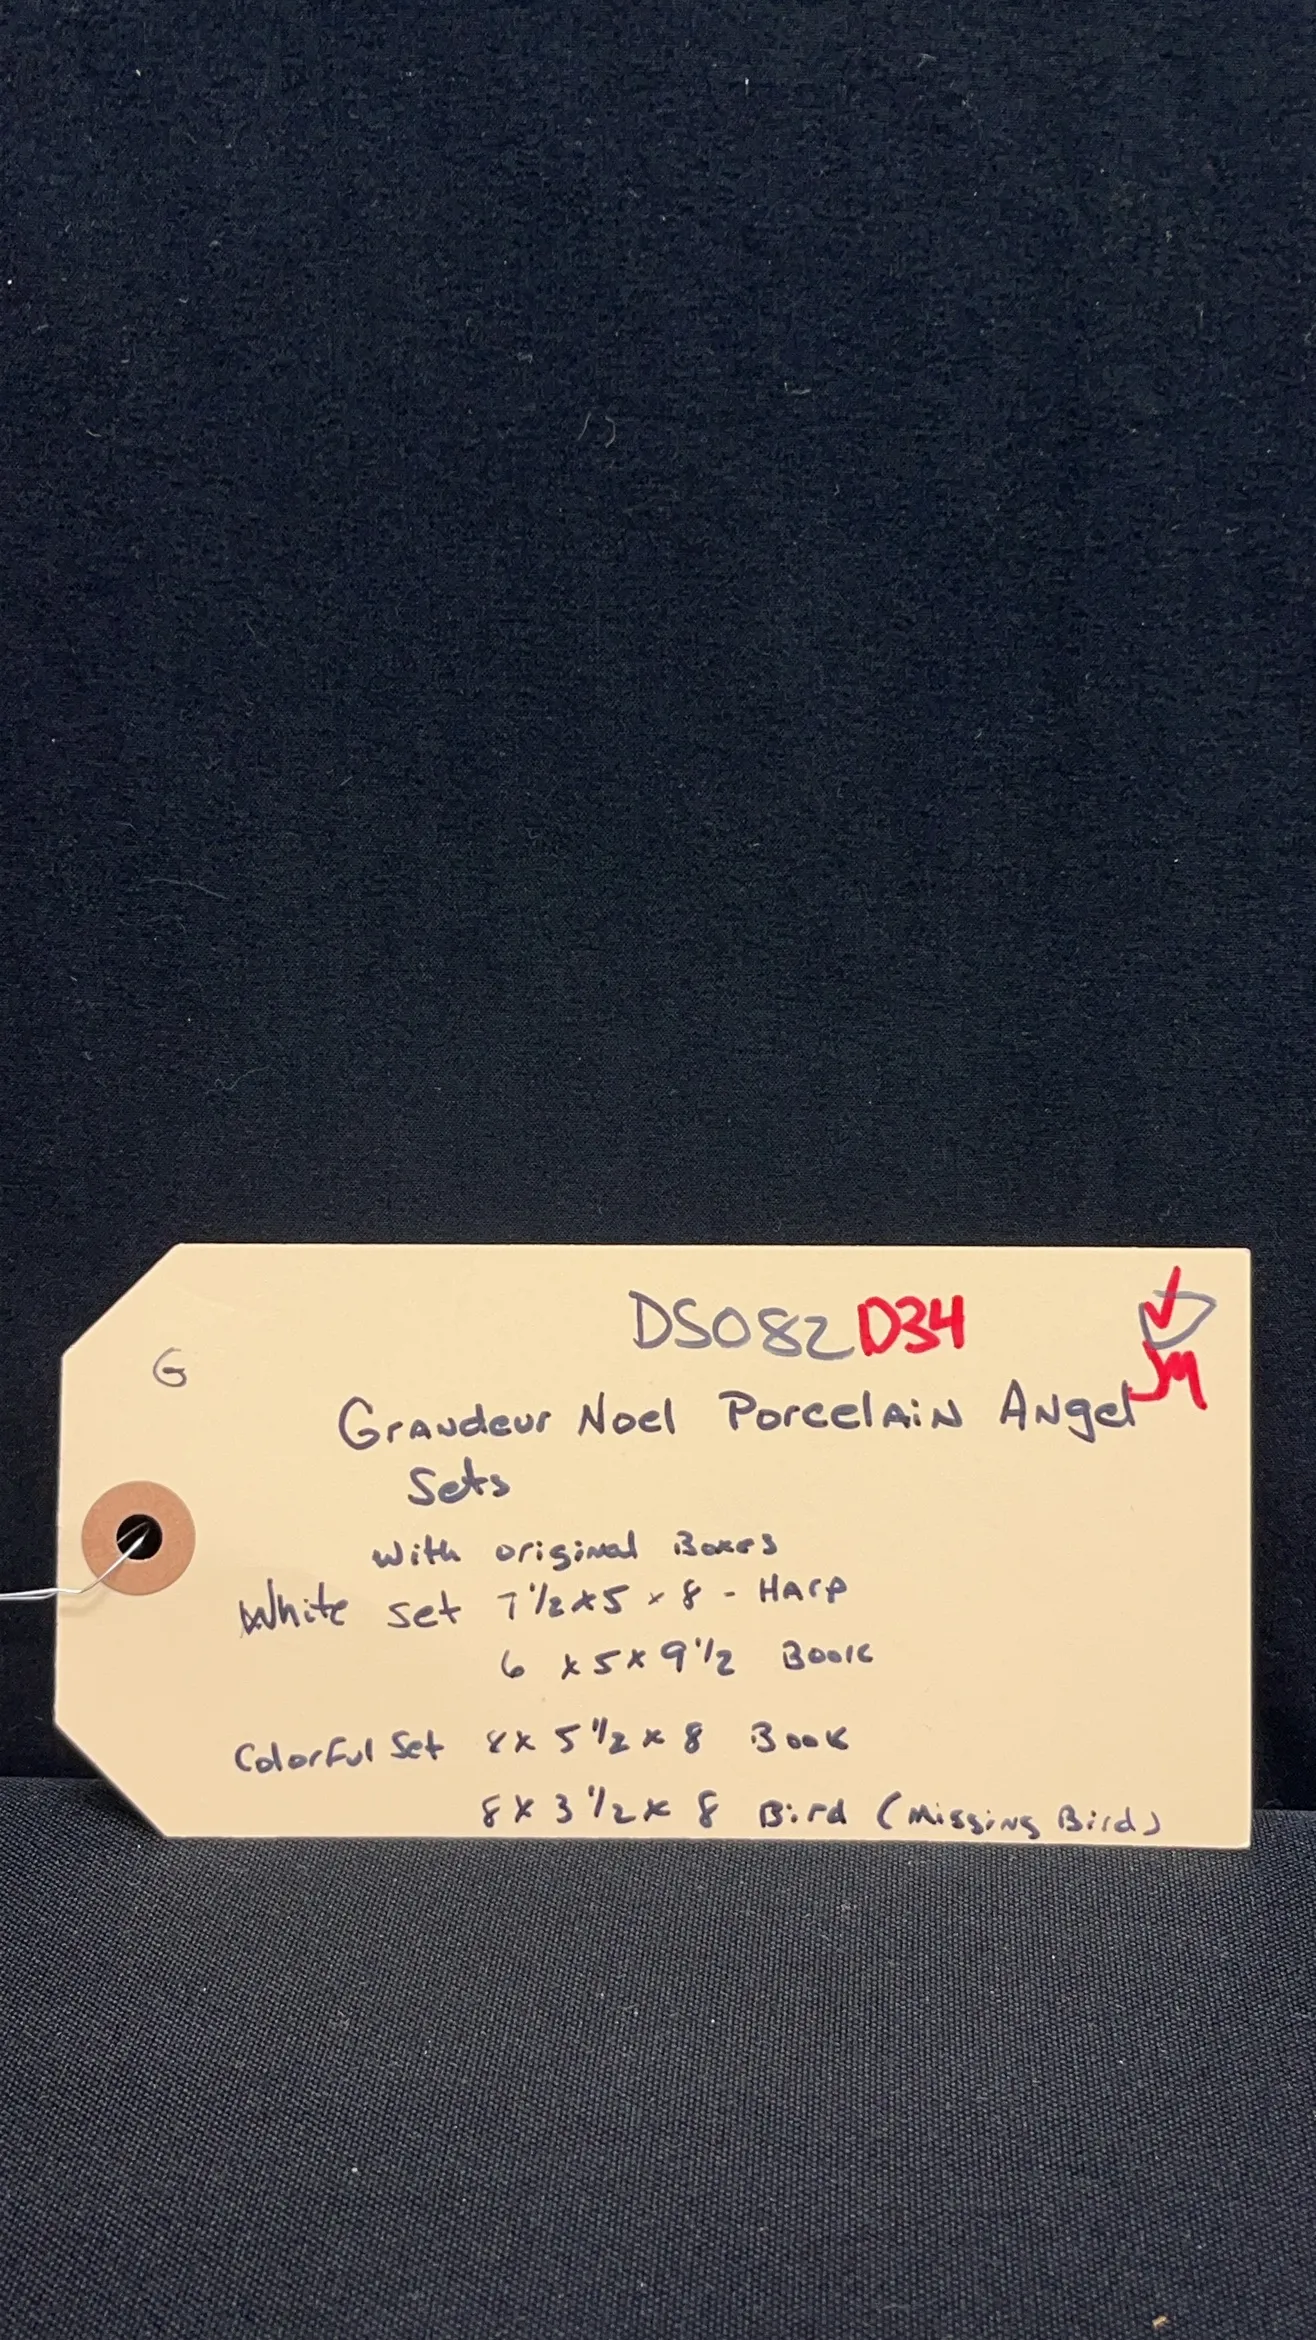 DS082 D34
JM
G
Grandeur Noel Porcelain Angel
Sets
with original Boxes
White set 7 1/2 x 5 x 8 - Harp
6 x 5 x 9 1/2 Book
Colorful Set 8 x 5 1/2 x 8 Book
8 x 3 1/2 x 8 Bird (Missing Bird)